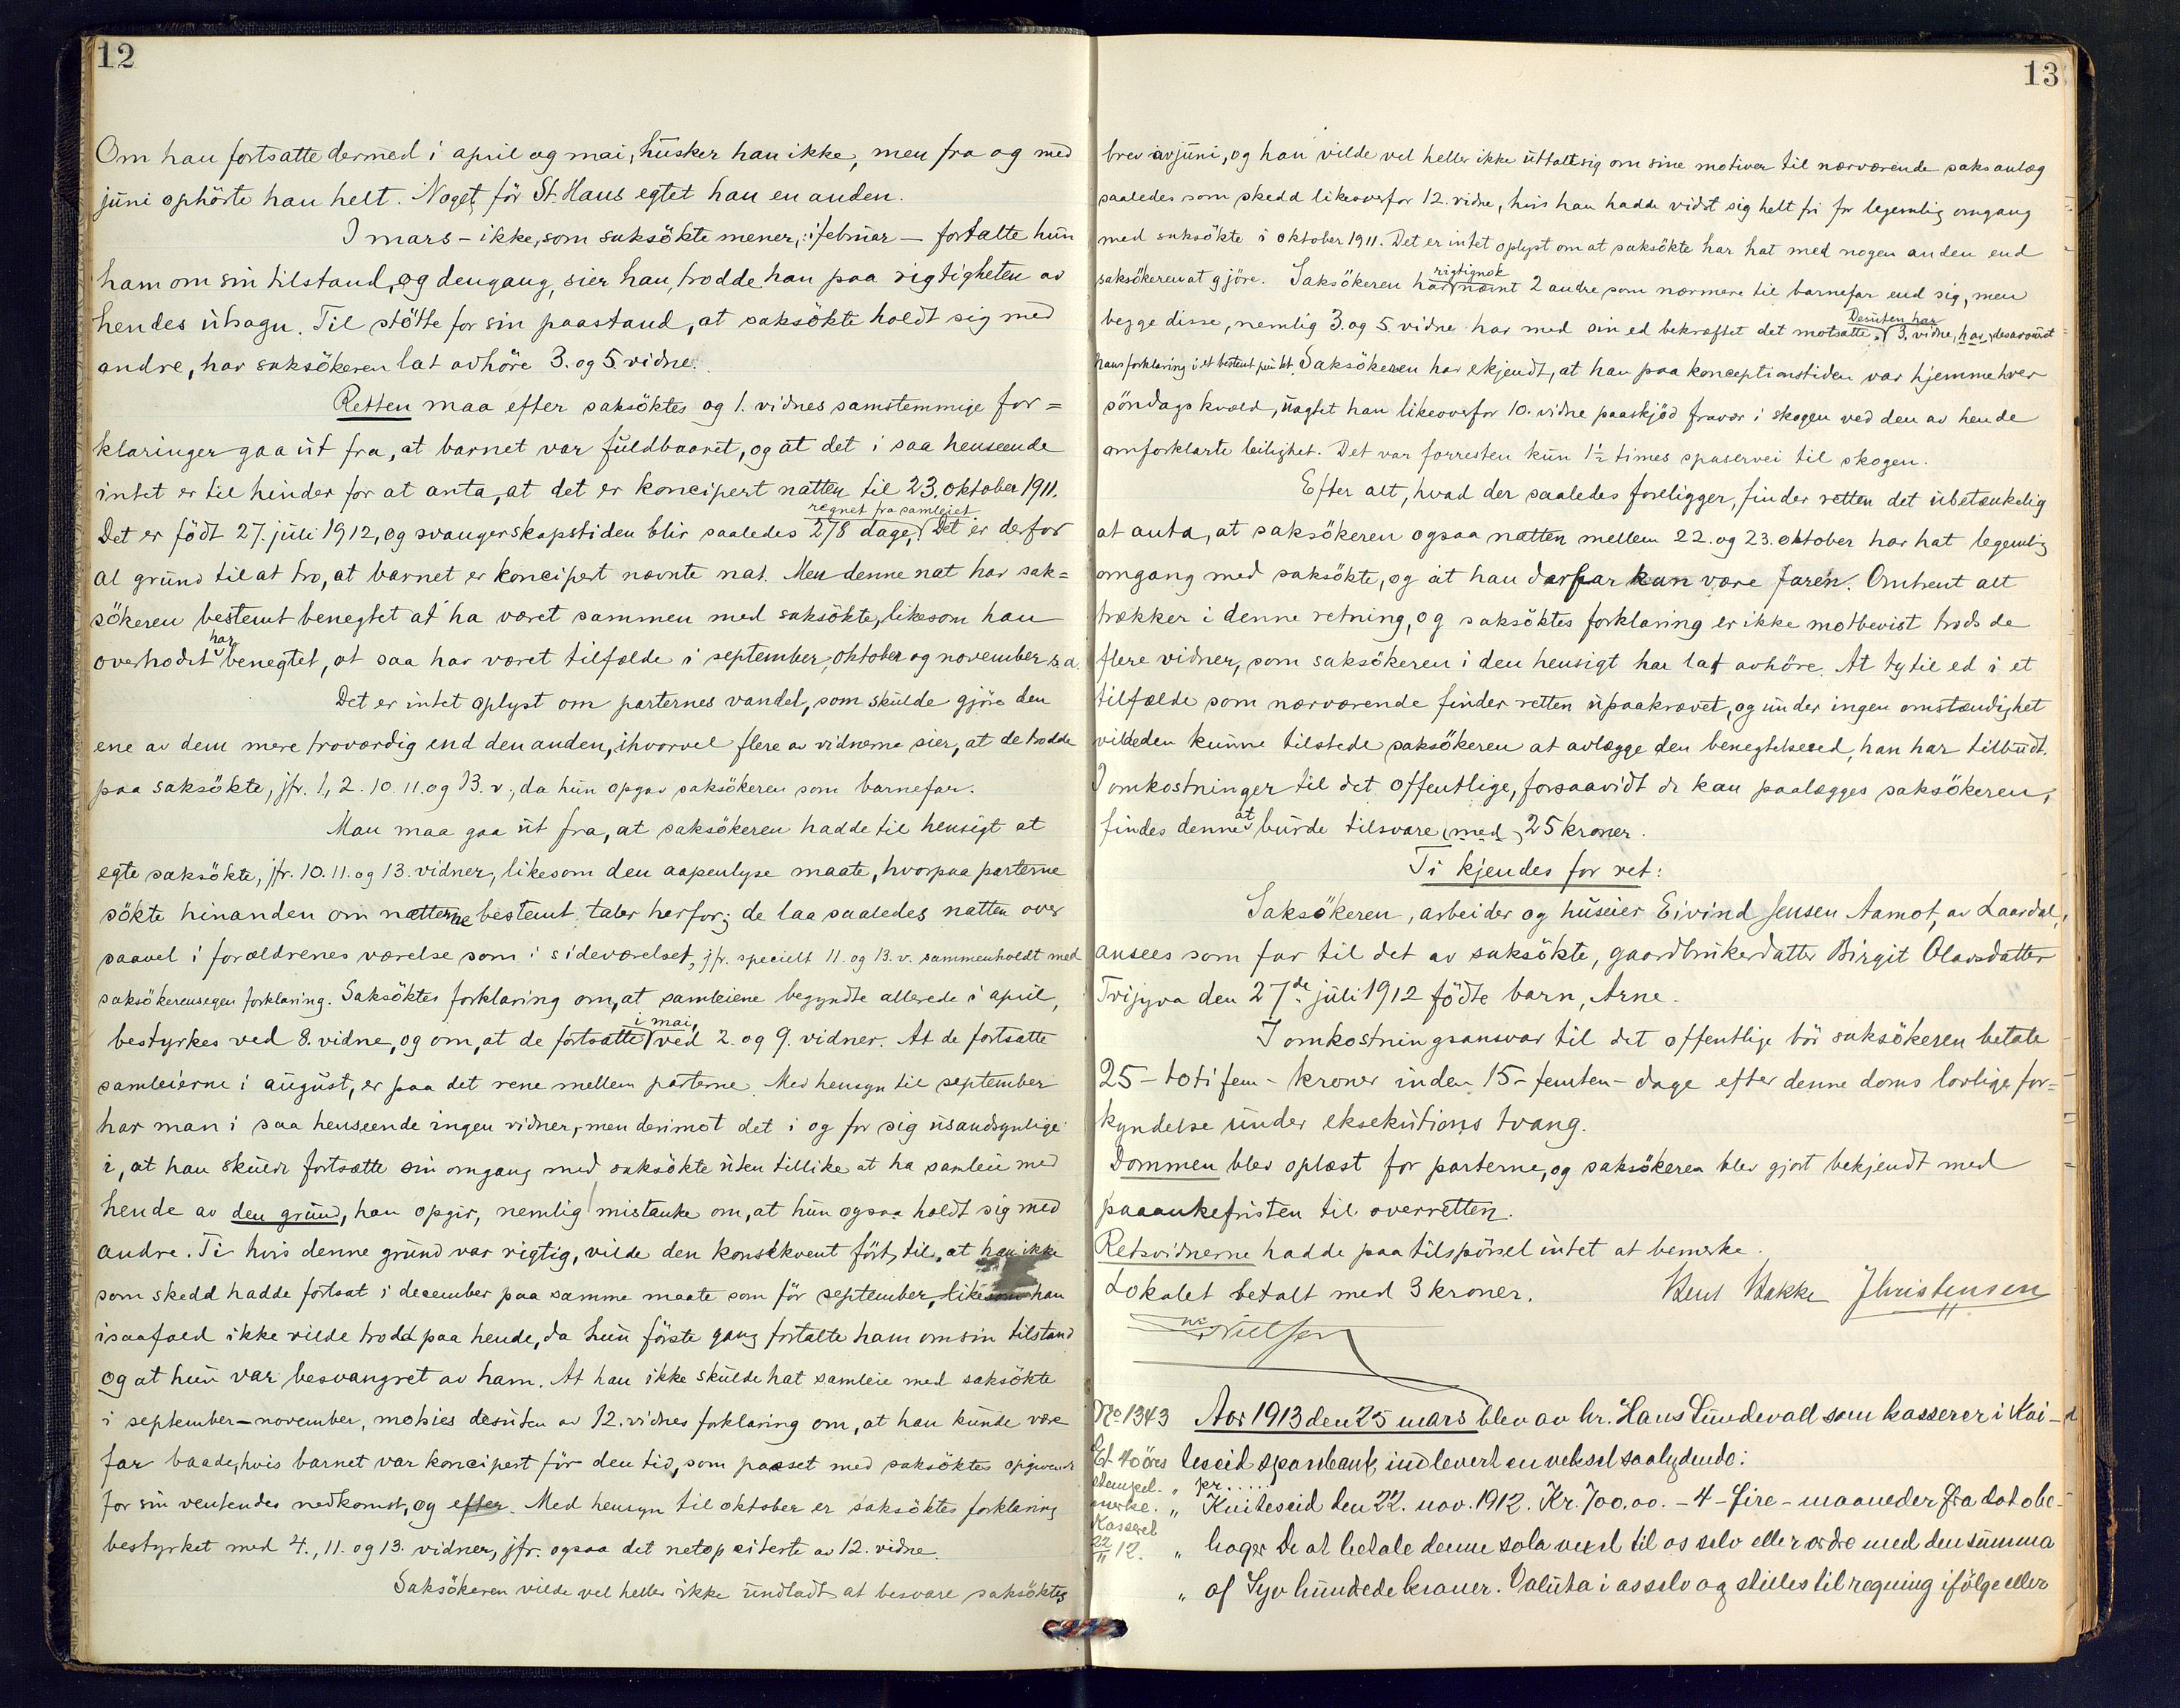 12
Om han fortsatte dermed i april og mai, husker han ikke, men fra og med
juni ophörte han helt. Noget för St. Hans egtet han en anden.
I mars – ikke, som saksökte mener, i februar – fortalte hun
ham om sin tilstand, og dengang, sier han, trodde han paa rigtigheten av
hendes utsagn. Til stötte for sin paastand, at saksökte holdt sig med
andre, har saksökeren lat avhöre 3. og 5. vidne.
Retten maa efter saksöktes og 1. vidnes samstemmige for=
klaringer gaa ut fra, at barnet var fuldbaaret, og at det i saa henseende
intet er til hinder for at anta, at det er koncipert natten til 23. oktober 1911.
regnet fra samleiet
Det er födt 27. juli 1912, og svangerskapstiden blir saaledes 278 dage, Det er derfor
al grund til at tro, at barnet er koncipert nævnte nat. Men denne nat har sak=
sökeren bestemt benegtet at ha været sammen med saksökte, likesom han
har
overhodet benegtet, at saa har været tilfælde i september, oktober og november s.a.
Det er intet oplyst om parternes vandel, som skulde gjöre den
ene av dem mere troværdig end den anden, ihvorvel flere av vidnerne sier, at de trodde
paa saksökte, jfr. 1, 2. 10. 11. og 13. v., da hun opgav saksökeren som barnefar.
Man maa gaa ut fra, at saksökeren hadde til hensigt at
egte saksökte, jfr. 10. 11. og 13. vidner, likesom den aapenlyse maate, hvorpaa parterne
sökte hinanden om nætterne bestemt taler herfor; de laa saaledes natten over
saavel i forældrenes værelse som i sideværelset, jfr. specielt 11. og 13. v. sammenholdt med
saksökerens egen forklaring. Saksöktes forklaring om, at samleiene begyndte allerede i april,
i mai,
bestyrkes ved 8. vidne, og om, at de fortsatte ved 2. og 9. vidner. At de fortsatte
samleierne i august, er paa det rene mellem parterne. Med hensyn til september
har man i saa henseende ingen vidner, men derimot det i og for sig usandsynlige
i, at han skulde fortsætte sin omgang med saksökte uten tillike at ha samleie med
hende av den grund, han opgir, nemlig mistanke om, at hun ogsaa holdt sig med
andre. Ti hvis denne grund var rigtig, vilde den konsekvent fört til, at han ikke
som skedd hadde fortsat i december paa samme maate som för september, likesom han
isaafald ikke vilde trodd paa hende, da hun förste gang fortalte ham om sin tilstand
og at hun var besvangret av ham. At han ikke skulde hat samleie med saksökte
i september–november, motsies desuten av 12. vidnes forklaring om, at han kunde være
far baade, hvis barnet var koncipert för den tid, som passet med saksöktes opgivende
for sin ventendes nedkomst, og efter. Med hensyn til oktober er saksöktes forklaring
bestyrket med 4., 11. og 13. vidner, jfr. ogsaa det netop citerte av 12. vidne.
Saksökeren vilde vel heller ikke undladt at besvare saksöktes
13
brev av juni, og han vilde vel heller ikke uttalt sig om sine motiver til nærværende saksanlæg
saaledes som skedd likeoverfor 12. vidne, hvis han hadde vidst sig helt fri for legemlig omgang
med saksökte i oktober 1911. Det er intet oplyst om at saksökte har hat med nogen anden end
rigtignok
saksökeren at gjöre. Saksökeren har nævnt 2 andre som nærmere til barnefar end sig, men
Desuten har
begge disse, nemlig 3. og 5. vidne har med sin ed bekræftet det motsatte. 3. vidne, har desavouert
hans forklaring i et bestemt punkt. Saksökeren har erkjendt, at han paa konceptionstiden var hjemme hver
söndags kvæld, uagtet han likeoverfor 10. vidne paaskjöd fravær i skogen ved den av hende
omforklarte leilighet. Det var forresten kun 1½ times spaservei til skogen.
Efter alt, hvad der saaledes foreligger, finder retten det ubetænkelig
at anta, at saksökeren ogsaa natten mellem 22. og 23. oktober har hat legemlig
omgang med saksökte, og at han derfor kan være faren. Omtrent alt
trækker i denne retning, og saksöktes forklaring er ikke motbevist trods de
flere vidner, som saksökeren i den hensigt har lat avhöre. At ty til ed i et
tilfælde som nærværende finder retten upaakrævet, og under ingen omstændighet
vilde den kunne tilstede saksökeren at avlægge den benegtelsesed, han har tilbudt.
I omkostninger til det offentlige, forsaavidt de kan paalægges saksökeren,
at
findes denne burde tilsvare med 25 kroner.
Ti kjendes for ret:
Saksökeren, arbeider og huseier Eivind Jensen Aamot, av Laardal,
ansees som far til det av saksökte, gaardbrukerdatter Birgit Olavsdatter
Tvigyva den 27de juli 1912 födte barn, Arne.
I omkostningsansvar til det offentlige bör saksökeren betale
25 – toti fem – kroner inden 15 – femten – dage efter denne doms lovlige for=
kyndelse under eksekutions tvang.
Dommen blev oplæst for parterne, og saksökeren blev gjort bekjendt med
paaankefristen til overretten.
Retsvidnerne hadde paa tilspörsel intet at bemerke.
Lokalet betalt med 3 kroner. Knut Bakke JChristensen
Nielsen
No 1343 Aar 1913 den 25 mars blev av hr. Hans Sundevall som kasserer i Kvi-
Et 40 öres teseid sparebank, indlevert en veksel saalydende:
stempel- „ pr.....
merke. „ Kviteseid den 22. nov. 1912. Kr. 700,00. – 4 – fire – maaneder fra dato be-
Kassert
22/11 12. „ hager De at betale denne sola veksel til os selv eller ordre med den summa
„ af Syv hundrede kroner. Valuta i os selv og stilles til regning ifölge eller